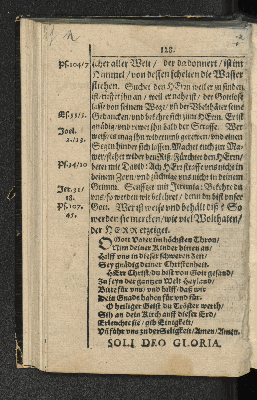 128.
Ps. 104/7
ichet aller Welt / der da donnert / ist im
Himmel / von dessen schelten die Wasser
fliehen. Suchet den HErrn weiler zu finden
ist / ruffet ihn an / weil er nahe ist / der Gottlose
Es. 55/5.
lasse von seinem Wege / und der Übelthäter seine
Gedancken / und bekehre sich zum HErrn. Er ist
Joel.
2./13.
gnädig / und rewet ihn bald der Straffe. Wer
weiß / es mag ihn widerumb gerewen / und einen
Segen hinder sich lassen. Machet euch zur Ma-
wer / stehet wider den Riß. Fürchtet den HErrn /
betet mit David: Ach HErr straffe uns nicht in
deinem Zorn / und züchtige uns nicht in deinem
Grimm. Seufftzet mit Jeremia: Bekehre du
Jer. 31/
18.
uns / so werden wir bekehret / denn du bist unser
Gott. Wer ist weise und behält diß? So
45.
werden sie mercken / wie viel Wolthaten /
der HERR erzeiget.
O Gott Vater im höchsten Thron /
Nim deiner Kinder bitten an /
Hilff uns in dieser schweren Zeit /
Sey gnädig deiner Christenheit.
HErr Christ / du bist von Gott gesand /
Zu seyn der gantzen Welt Heyland /
Bitte für uns / und hilff / daß wir
Dein Gnade haben für und für.
O heiliger Geist du Tröster werth /
Sih an dein Kirch auff dieser Erd /
Erleuchte sie / gib Einigkeit /
Und führ uns zu der Seligkeit / Amen / Amen.
SOLI DEO GLORIA.